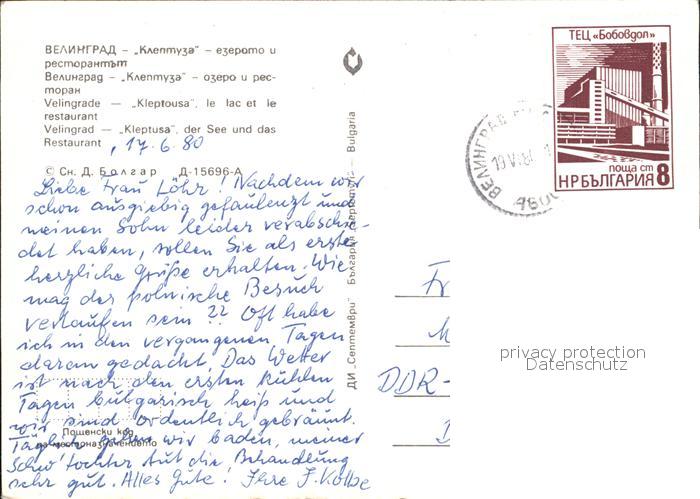 ВЕЛИНГРАД – „Клептуза” – езерото и
ресторантът
Велинград – „Клептуза” – озеро и рес-
торан
Velingrade — „Kleptousa”, le lac et le
restaurant
Velingrad — „Kleptusa”, der See und das
Restaurant
, 17.6.80
© Сн. Д. Болгар Д-15696-А
Liebe Frau Löhr! Nachdem wir
schon ausgiebig gefaulenzt und
meinen Sohn leider verabschie-
det haben, sollen Sie als erste
herzliche Grüße erhalten. Wie
mag der polnische Besuch
verlaufen sein?? Oft habe
ich in den vergangenen Tagen
daran gedacht. Das Wetter
ist nach den ersten kühlen
Tagen bulgarisch heiß und
wir sind ordentlich gebräunt.
Пощенски код
Täglich gehen wir baden, meiner
местоназначението
Schw'tochter tut die Behandlung
sehr gut. Alles Gute! Ihre J. Kolbe
ДИ „Септември” България Септември Bulgaria
ВЕЛИНГРАД
19.V
4600
ТЕЦ «Бобовдол»
поща ст 8
НРБЪЛГАРИЯ
Fr
DDR-
privacy protection
Datenschutz